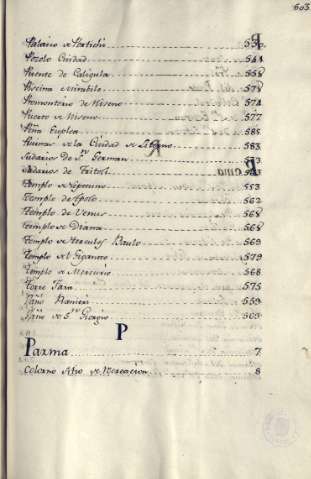 603
Palacio de Portichi 530
Pozolo Ciudad 541
Puente de Caligula 558
Piscina mirabile 573
Promontorio de Miseno 574
Puerto de Miseno 577
Peña Euplea 585
Ruinas de la Ciudad de 583
Sudarios de Sn. German
Sudarios de Tritoli
Templo de 553
Templo de Apolo 562
Templo de Venus 568
Templo de Diana 568
Templo de Hercules Baulo 569
Templo de el Gigante 579
Templo de Mercurio 568
Torre 575
Baños 559
Baño de Sn. Giorgio 603
P
Parma 7
Colorno Sitio de Recreacion 8